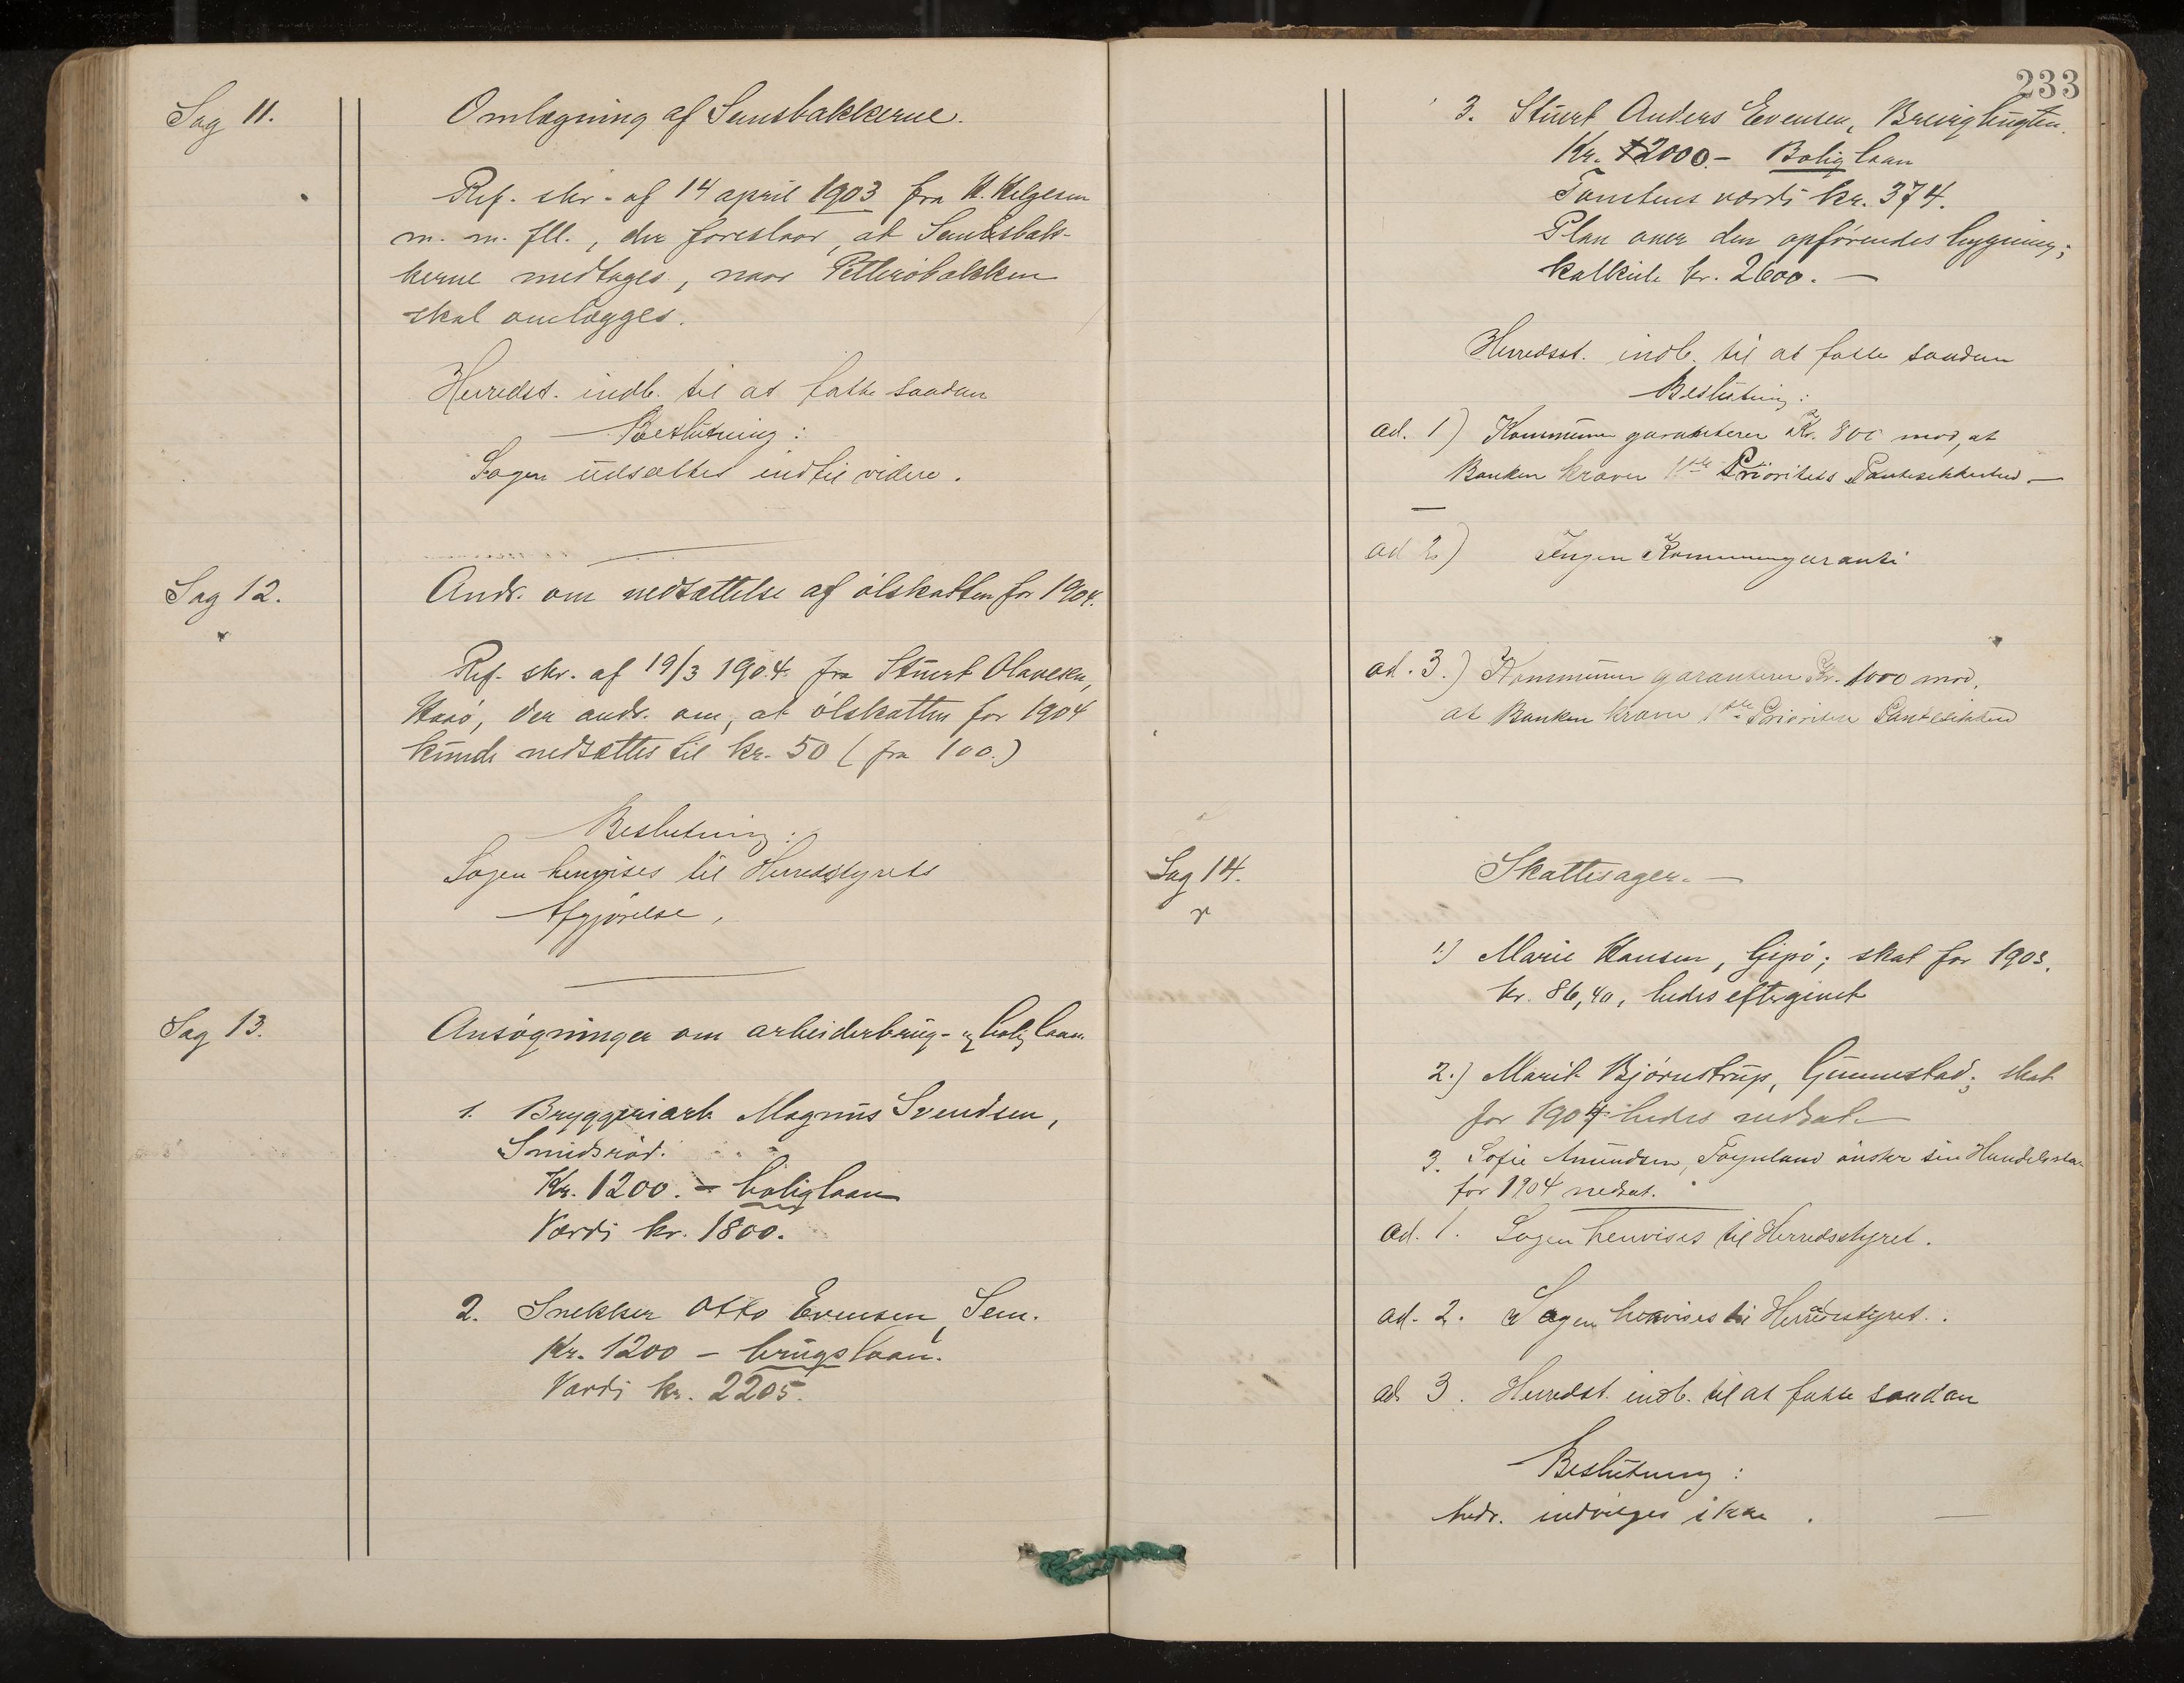 Sag 11.
Omlægning af Semsbakkerne.
Ref. skr. af 14 april 1903 fra H. Helgesen
m. m. fll., der foreslaar, at Semsbak-
kerne medtages, naar Petterøbakken
skal omlægges.
Herredst. indb. til at fatte saadan
Beslutning:
Sagen udsættes indtil videre.
Sag 12.
Andr. om nedsættelse af ølskatten for 1904.
Ref. skr. af 19/3 1904 fra Stuert Olavesen,
der andr. om, at ølskatten for 1904
kunde nedsættes til kr. 50 (fra 100.)
Beslutning:
Sagen henvises til Herredsstyrets
Afgjørelse.
Sag 13.
Ansøgninger om arbeiderbrug- og boliglaan.
1. Bryggeriarb. Magnus Svendsen,
Smidsrød.
Kr. 1200. - boliglaan
Værdi kr. 1800.
2. Snekker Otto Evensen, Sem.
Kr. 1200 - brugslaan.
Værdi kr. 2205.
233
3. Stuert Anders Evensen,
Kr. 2000.- Boliglaan
Tomtens værdi kr. 374.
Plan over den opførendes bygning;
kalkule kr. 2600. —
Herredsst. indb. til at fatte saadan
Beslutning:
ad. 1) Kommunen garanterer Kr. 800 mod, at
Banken kræver 1ste Prioritets Pantesikkerhed —
ad 2) Ingen Kommunegaranti
ad. 3.) Kommunen garanterer Kr. 1000 mod,
at Banken kræver 1ste Prioritets Pantesikkerhed
Sag 14.
Skattesager. —
1.) Marie Hansen, Gipø; skat for 1903,
kr. 86,40, bedes eftergivet
2.) Marit Bjørnstrup, Gunnestad; skat
for 1904 bedes nedsat. —
3. Sofie Amundsen, Føynland ønsker sin
for 1904 nedsat.
ad. 1. Sagen henvises til Herredsstyret.
ad. 2. Sagen henvises til Herredsstyret.
ad. 3. Herredst. indb. til at fatte saadan
Beslutning:
Andr. indvilges ikke. —